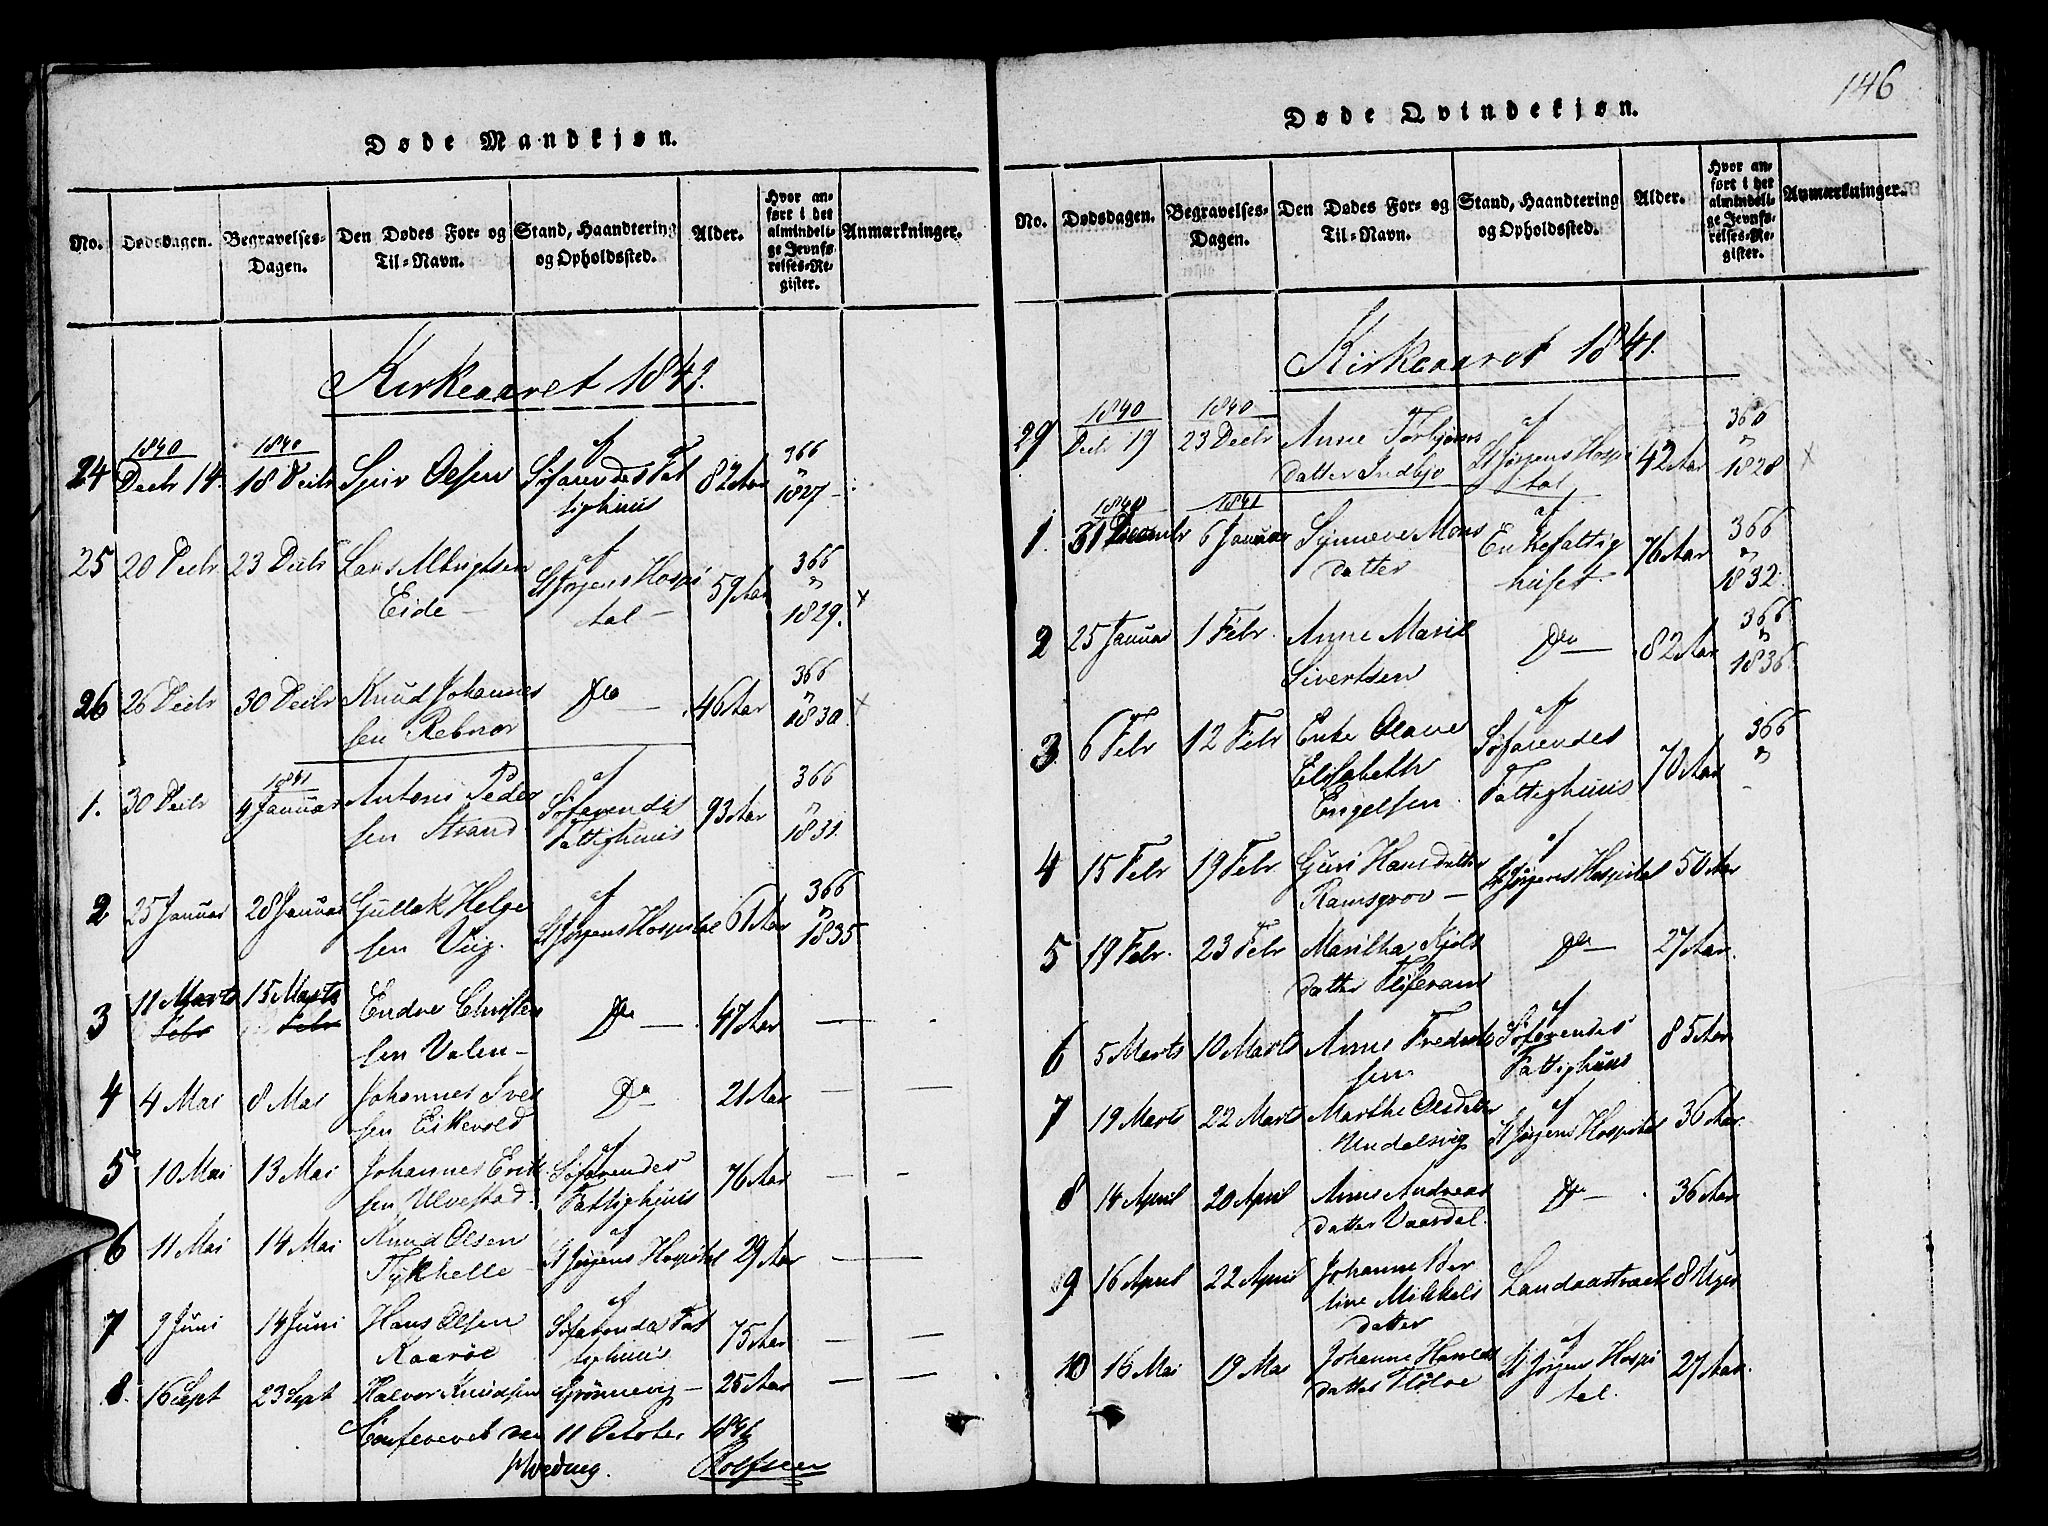 Døde Mandkjøn.
No. Dødsdagen. Begravelses-Dagen. Den Dødes For- og Til-Navn. Stand, Haandtering og Opholdssted. Alder. Hvor anført i det almindelige Jevnførelses-Register. Anmærkninger.
Kirkeaaret 1841.
1840 1840
24 Decbr 14. 18 Decbr Siur Olsen af Søfarendes Fattighuus 82 Aar 366 " 1827
25 20 Decbr 23 Decbr Lars Albrigtsen Eide af St Jørgens Hospital 59 Aar 366 " 1829. x
26 26 Decbr 30 Decbr Knud Johannessen Rebnor Do 46 Aar 366 " 1830. x
1841
1. 30 Decbr 4 Januar Antoni Pedersen Strand af Søfarendes Fattighuus 93 Aar 366 " 1831.
2 25 Januar 28 Januar Gullak Helgesen Viig. af St Jørgens Hospital 61 Aar 366 " 1835
3 11 Marts Febr 15 Marts Febr Endre Christensen Valen Do 47 Aar
4 4 Mai 8 Mai Johannes Iversen Eikevold Do 21 Aar
5 10 Mai 13 Mai Johannes Eriksen Ulvestad af Søfarendes Fattighuus 76 Aar
6 11 Mai 14 Mai Knud Olsen Tykhelle af St Jørgens Hospital 29 Aar
7 9 Juni 14 Juni Hans Olsen Kaarøe af Søfarendes Fattighuus 75 Aar
8. 16 Sept 23 Sept Halvor Knudsen Grønnevig 25 Aar
Confereret den 11 October 1841
Rolfsen
146
Døde Qvindekjøn.
No. Dødsdagen. Begravelses-Dagen. Den Dødes For- og Til-Navn. Stand, Haandtering og Opholdssted. Alder. Hvor anført i det almindelige Jevnførelses-Register. Anmærkninger.
Kirkeaaret 1841.
1840 1840
29 Decbr 19 23 Decbr Anne Torbjørnsdatter Indbjo af St Jørgens Hospital 42 Aar 366 " 1828 x
1840 1841
1. 31 Decembr 6 Januar Synneve Monsdatter af Enkefattighuset 76 Aar 366 " 1832.
2 25 Januar 1 Febr. Anne Marie Sivertsen Do 82 Aar 366 " 1836
3 6 Febr 12 Febr Enke Olave Elisabeth Engelsen af Søfarendes Fattighuus 70 Aar 366 "
4 15 Febr 19 Febr Guri Hansdatter Ramsgrov af St Jørgens Hospital 50 Aar
5 19 Febr. 23 Febr Maritha datter Do 27 Aar.
6 5 Marts 10 Marts Anne Fredriksen af Søfarendes Fattighuus 85 Aar
7 19 Marts 22 Marts Marthe Olsdatter Undalsvig af St Jørgens Hospital 36 Aar
8 14 April 20 April Anne Andreasdatter Vaardal. Do 36 Aar
9 16 April 22 April Johanne Berline Mikkelsdatter Landaastræde 8 Uger
10 16 Mai 19 Mai Johanne Haraldsdatter af St Jørgens Hospital. 27 Aar